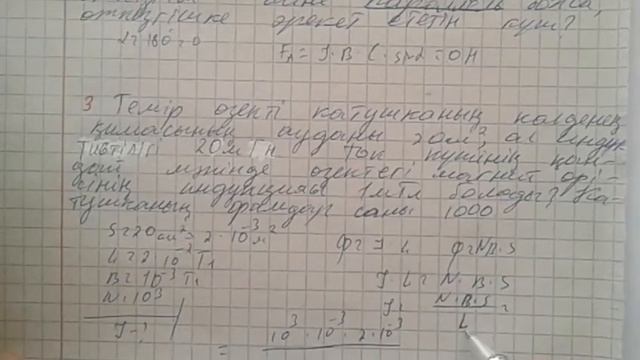 өткізгішке әрекет ететін күш?
α=180=0 Fₐ = J·B·l·sinα=0H
3 Темір өзекті катушканың көлденең
қимасының ауданы 20см², ал индук
тивтілігі 20мГн. Ток күшінің қан-
дай мәнінде өзектегі магнит өрі-
сінің индукциясы 1мТл болады? Ка-
тушканың орамдар саны 1000
S=20см²=2·10⁻³м² Ф=J L Ф=NB·S
L=2·10⁻² T₁
B=10⁻³ T₁ J·L=N·B·S
N·10³ J= N·B·S =
L
J-?
= 10³·10⁻³·2·10⁻³